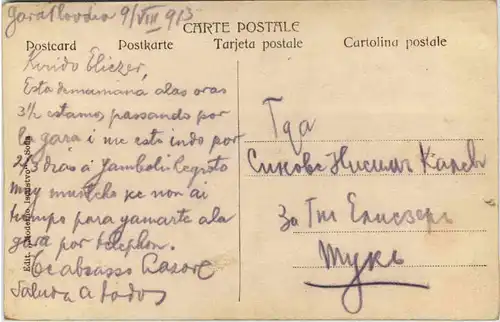 Gara Plovdiv 9/VIII 913
CARTE POSTALE
Postcard Postkarte Tarjeta postale Cartolina postale
Kerido Eliezer,
Esta demanana alas oras
3½ estamos passando por
la gara i me esto indo por
dias a Jamboli Regreto
muy muncho ke non ai
tiempo para yamarte ala
gara por telephon.
Te abrasso Lazare
Saluda a todos
Тда
Синове Нисимъ
За Гнъ Елиезеръ
Тукъ